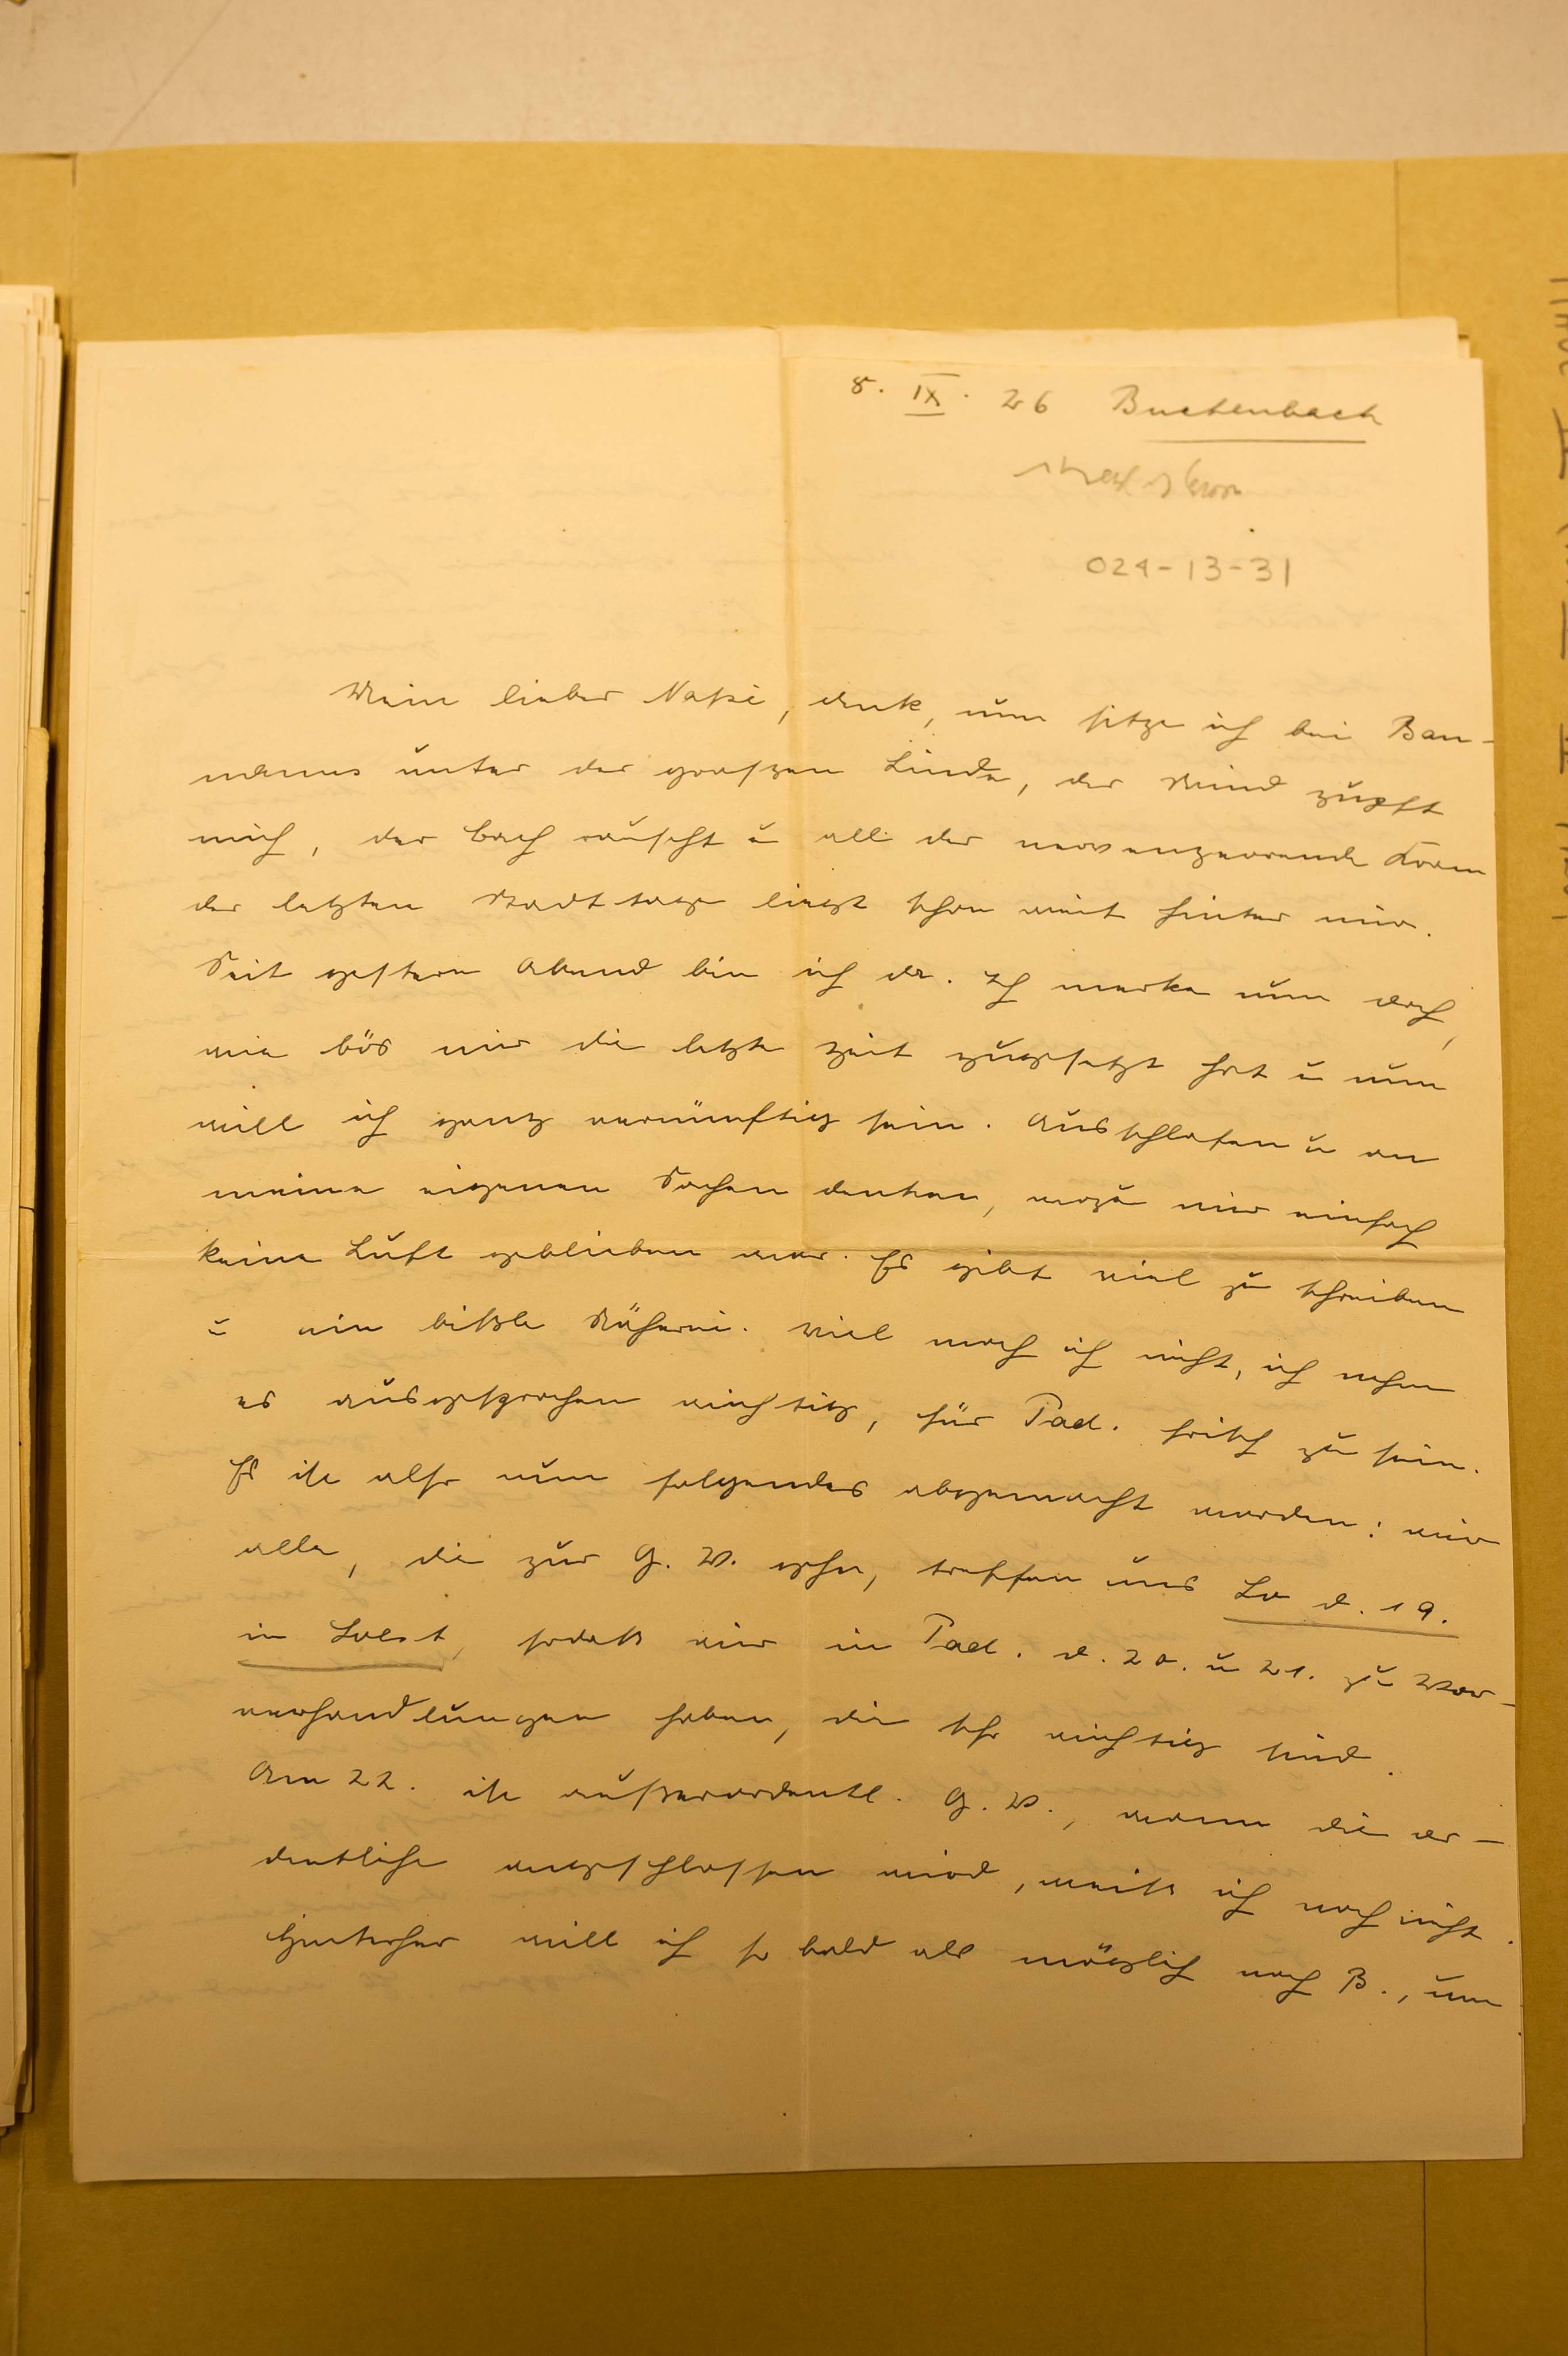 8. IX. 26 Buchenbach
024-13-31
Mein lieber denk, nun sitze ich bei Bau-
manns unter der grossen Linde, der Wind zupft
mich, der Bach rauscht u all der nervenzerrende Lärm
der letzten Stadttage liegt schon weit hinter mir.
Seit gestern Abend bin ich da. Ich merke nun doch,
wie bös mir die letzte Zeit zugesetzt hat u nun
will ich ganz vernünftig sein. Ausschlafen u an
meine eigenen Sachen denken, wozu mir einfach
keine Luft geblieben war. Es gibt viel zu schreiben
u ein bissle Näherei. Viel mach ich nicht, ich nehm
es ausgesprochen wichtig, für Pad. frisch zu sein.
Es ist also nun folgendes abgemacht worden: wir
alle, die zur G. V. gehn, treffen uns So d. 19.
in Soest, sodass wir in Pad. d. 20. u 21. zu Vor-
verhandlungen haben, die sehr wichtig sind.
Am 22. ist ausserordentl. G. V., wann die or-
dentliche angeschlossen wird, weiss ich noch nicht.
Hinterher will ich so bald als möglich nach B., um